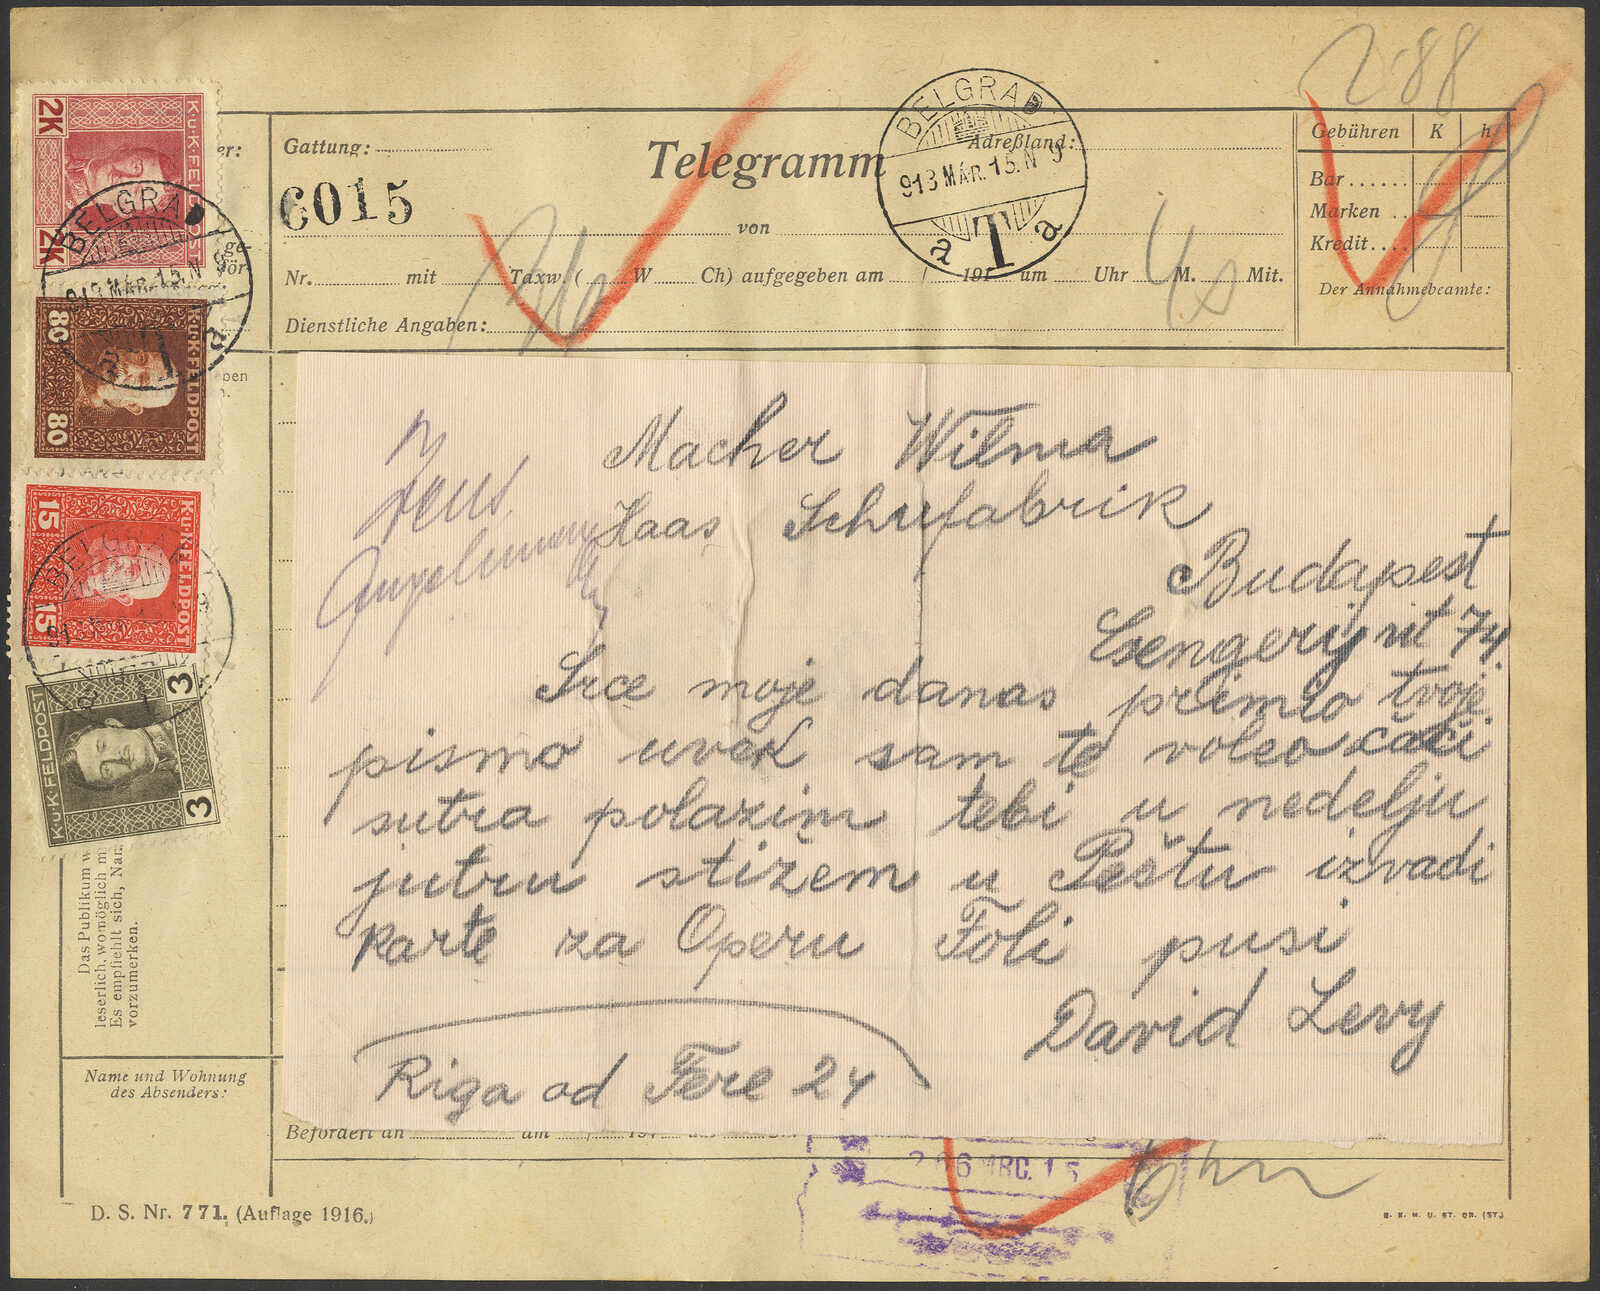 2·88
Gattung:
Telegramm
Adreßland:
Gebühren K h
6015
Bar
Marken
von
Kredit
Nr. mit Taxw. ( W Ch) aufgegeben am / 191 um Uhr M. Mit.
Der Annahmebeamte:
Dienstliche Angaben:
BELGRAD
913 MÁR. 15. N 9
a T a
2K
K.u.K. FELDPOST
2K
BELGRAD
913 MÁR. 15. N 9
a T a
80
K.u.K. FELDPOST
80
15
K.u.K. FELDPOST
15
BELGRAD
3
K.u.K. FELDPOST
3
Macher Wilma
Haas Schufabrik
Budapest
Csengerij ut 74
Srce moje danas primio tvoje
pismo uvek sam te voleo čači
sutra polazim tebi u nedelju
jutru stižem u Peštu izvadi
karte za Operu Foli pusi
David Levy
Riga od Fere 24
Das Publikum
leserlich, womöglich
Es empfiehlt sich,
vorzumerken.
Name und Wohnung
des Absenders:
Befördert an am
MRC. 15
D. S. Nr. 771. (Auflage 1916.)